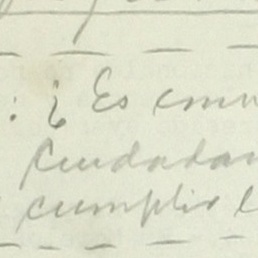 : ¿ Es conv
Ciudadan
cumplir l